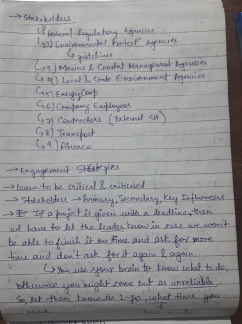 → Stakeholders
↳ Federal Regulatory Agencies
↳ 2) Environmental Protect Agencies
↳ guidelines
↳ 3) Marine & Coastal Management Agencies
↳ 4) Local & State Environment Agencies
↳ 5) Energy Corp
↳ 6) Company Employees
↳ 7) Contractors (External SH)
↳ 8) Transport
↳ 9) Finance
→ Engagement Strategies
→ learn to be critical & criticised
→ Stakeholders → Primary, Secondary, Key Influencers
→ If a project is given with a deadline, then
we have to let the leader know in case we won't
be able to finish it on time and ask for more
time and don't ask for it again & again.
↳ You use your brain to know what to do,
otherwise you might come out as unreliable.
So, let them know in 1-go, what time you
need.